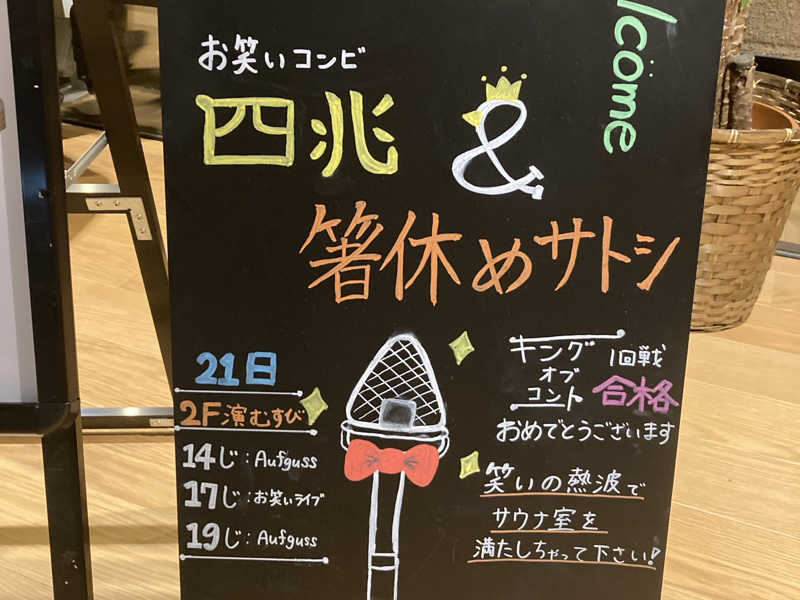 lcome
お笑いコンビ
四兆 &
箸休めサトシ
21日
2F演むすび
14じ:Aufguss
17じ:お笑いライブ
19じ:Aufguss
キング
オブ
コント
1回戦
合格
おめでとうございます
笑いの熱波で
サウナ室を
満たしちゃって下さい!